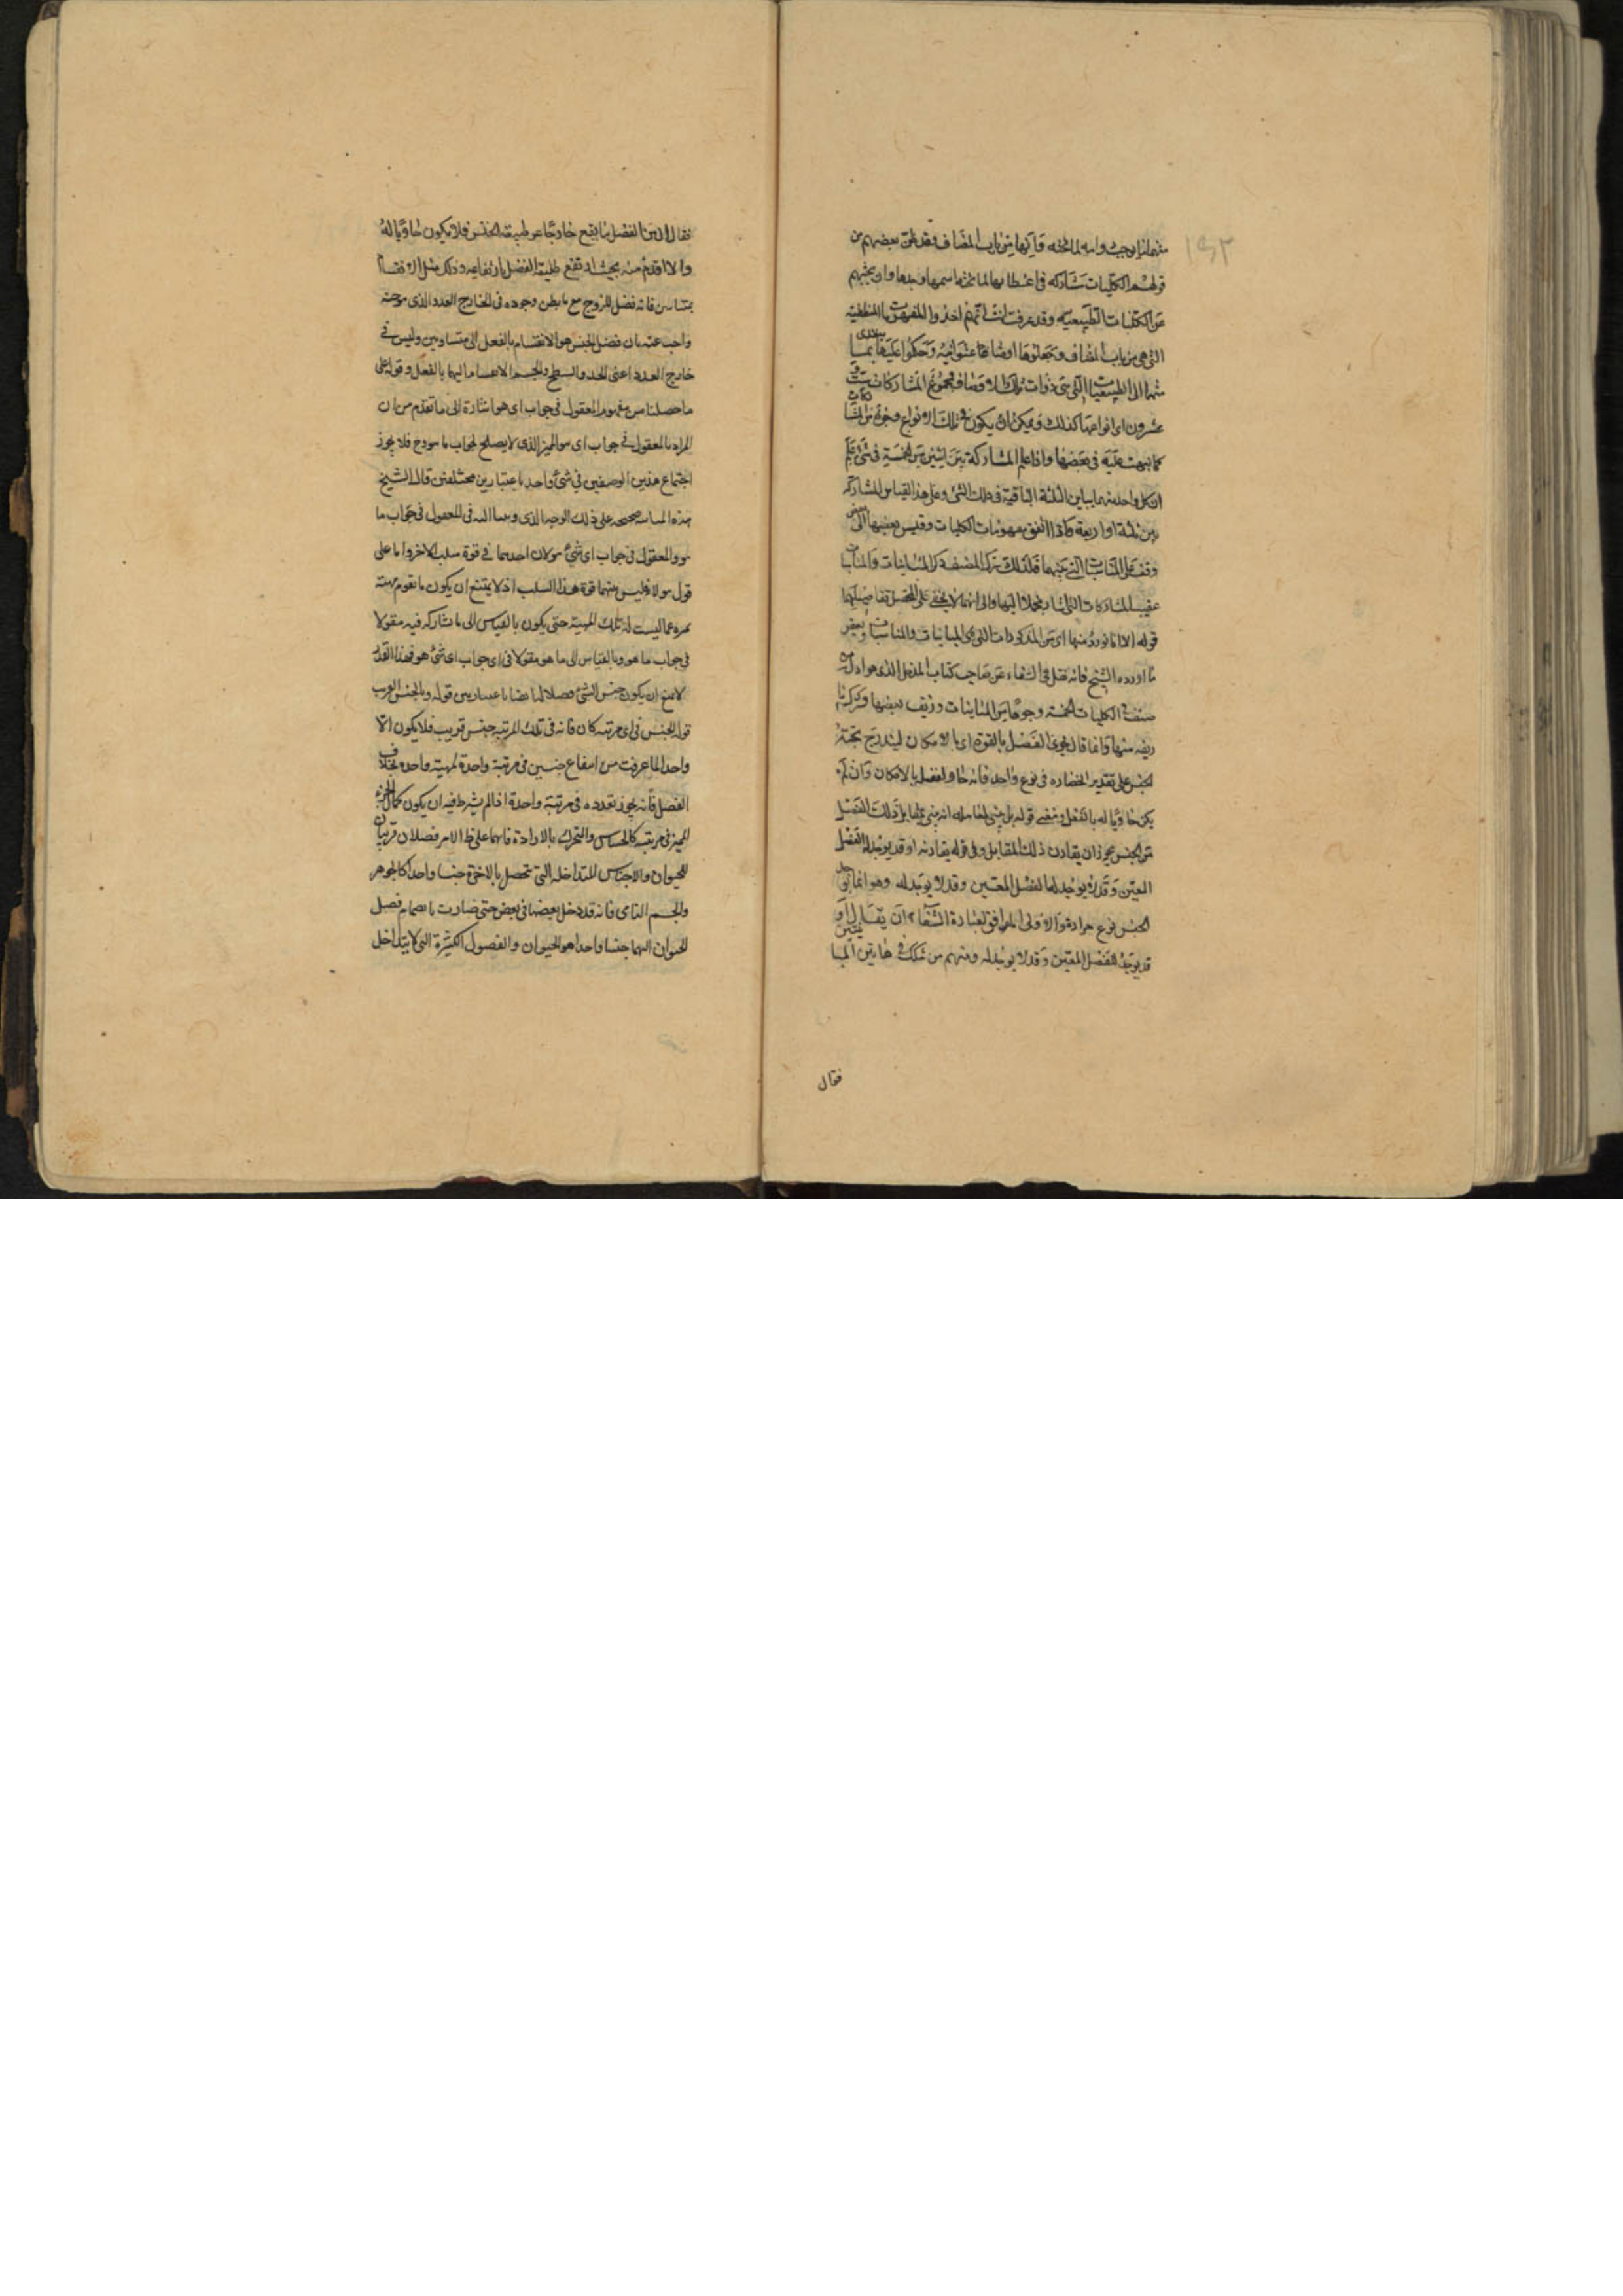 ١٩٢
منها انها يوجب واسه لما تحته وانها من باب المضاف وقد ظن بعضهم من
قولهم الكليات تشاركه في اعطايها لما تحته اسمها وحدها وان بحثهم
عن الكليات الطبيعيه وقد عرفت انت انهم اخذوا المفهومات المنطقية
التي هي من باب المضاف وجعلوها اوصافا عنوانية وحكموا عليها بما يتعدى
منها الى الطبيعيات التي هي ذوات تلك الاوصاف فمجموع المشاركات ست و
عشرون اى انواعها كذلك ويمكن ان يكون في تلك الانواع وجوه من المشاركات
كما نبهت عليه في بعضها واذا علم المشاركة بين اثنين من الخمسة في شئ علم
ان كل واحد منهما يباين الثلثة الباقية في ذلك الشئ وعلى هذا القياس المشاركة
بين ثلثة او اربعة واذا اتفق مفهومات الكليات وقيس بعضها الى بعض
وقف على المناسبات التي بينهما فلذلك ترك المصنف ذكر المباينات والمناسبات
عقيب المشاركات التي اشار مجملا اليها والى انها لا يخفى على المحصل تفاصيلها
قوله الا انا نورد منها اى من المذكورات التي هي المباينات والمناسبات بعض
ما اورده الشيخ فانه نقل في الشفاء عن صاحب كتاب المدخل الذى هو اول من
صنف في الكليات الخمسة وجوها من المباينات وزيف بعضها وذكر ما
ارتضه منها وانما قال يحوى الفصل بالقوة اى بالامكان ليندرج تحته
الجنس على تقدير انحصاره في نوع واحد فانه حاو لفصل بالامكان وان لم
يكن حاويا له بالفعل ومعنى قوله بل ينبي لمقابله انه ينبي بمقابل ذلك الفصل
من الجنس يجوز ان يقارن ذلك المقابل وفي قوله يقارنه او قد يوجد له الفصل
المعين وقد لا يوجد له الفصل المعين وقد لا يوجد له وهو انما يوجد
الجنس نوع حراوة والاولى الموافق لعبارة الشفاء ان يقال او
قد يوجد للفصل المعين وقد لا يوجد له ومنهم من شكك في هاتين المباينتين
فقال
فقال الذين الفصل ما يقع خارجا عن طبيعة الجنس فلا يكون حاويا له
والا اقدم منه بحيث يرتفع طبيعة الفصل بارتفاعه وذلك مثل الانقسام
بمتساويين فانه فصل للزوج مع ما يظن وجوده في الخارج العدد الذى هو جنسه
واجيب عنه بان فصل الجنس هو الانقسام بالفعل الى متساويين وليس في
خارج العدد اعنى الخط والسطح والجسم الانقسام اليهما بالفعل وقوله على
ما حصلنا من مفهوم المعقول في جواب اى هو اشارة الى ما تقدم من ان
المراد بالمعقول في جواب اى هو المميز الذى لا يصلح لجواب ما هو وح فلا يجوز
اجتماع هذين الوصفين في شئ واحد باعتبارين مختلفين قال الشيخ
هذه المباينة صحيحة على ذلك الوجه الذى وصفنا اليه في المعقول في جواب ما
هو والمعقول في جواب اى شئ هو لان احدهما في قوة سلب الاخر واما على
قول هولاء فليس منهما قوة هذا السلب اذ لا يمتنع ان يكون ما تقوم مهيته
يميزه عما ليست له تلك المهية حتى يكون بالقياس الى ما شاركه فيه مقولا
في جواب ما هو وبالقياس الى ما هو مقولا في اى جواب اى شئ هو فهذا القدر
لا يمنع ان يكون جنس الشئ فصلا له ايضا باعتبارين قوله والجنس القريب
قوله الجنس في اى مرتبة كان فانه في تلك المرتبة جنس قريب فلا يكون الا
واحدا لما عرفت من امتناع جنسين في مرتبة واحدة لمهية واحده بخلاف
الفصل فانه يجوز تعدده في مرتبة واحدة اذا لم يشرط فيه ان يكون كمال الجزء
المميز في مرتبة كالحساس والمتحرك بالارادة فانهما على ظاهر الامر فصلان قريبان
للحيوان والاجناس المتداخلة التي تحصل بالاخرة جنسا واحدا كالجوهر
والجسم النامى فانه قد دخل بعضها في بعض حتى صارت بانضمام فصل
الحيوان اليها جنسا واحدا هو الحيوان والفصول الكثيرة التي لا يتداخل